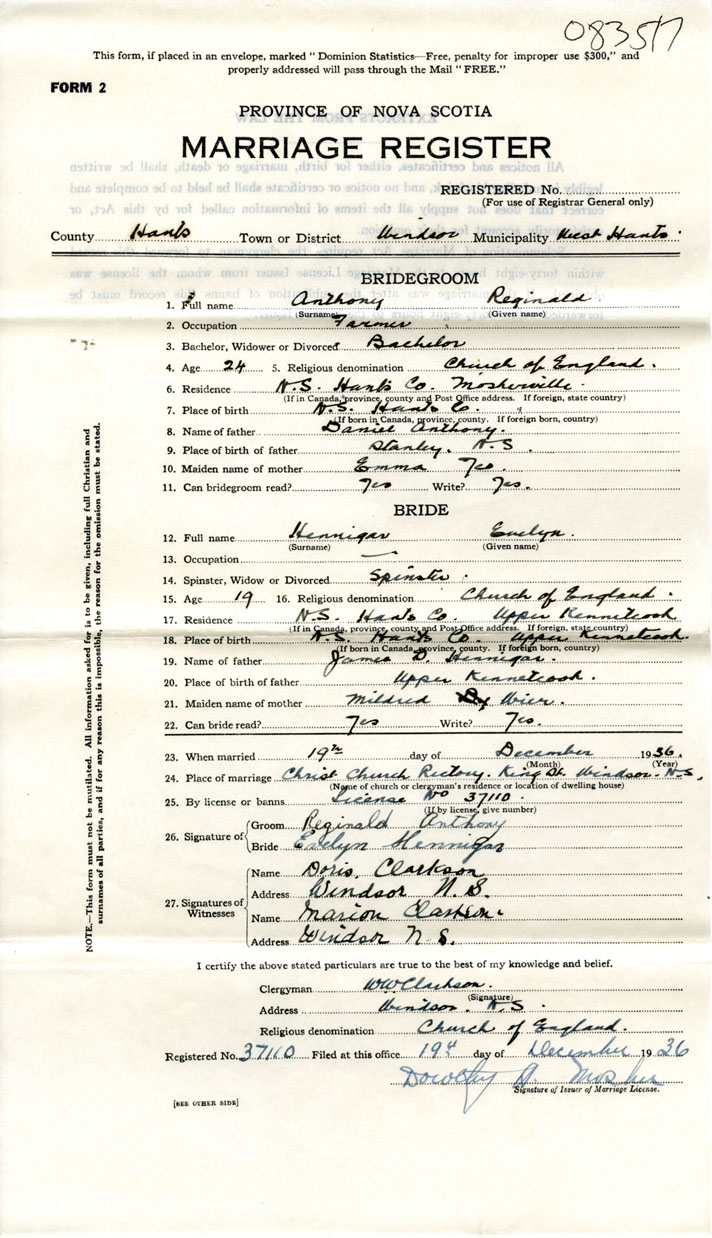 083517
This form, if placed in an envelope, marked "Dominion Statistics—Free, penalty for improper use $300," and
properly addressed will pass through the Mail "FREE."
FORM 2
PROVINCE OF NOVA SCOTIA
MARRIAGE REGISTER
REGISTERED No.
(For use of Registrar General only)
County Hants Town or District Windsor Municipality West Hants.
BRIDEGROOM
1. Full name Anthony Reginald
(Surname) (Given name)
2. Occupation Farmer
3. Bachelor, Widower or Divorced Bachelor
4. Age 24 5. Religious denomination Church of England.
6. Residence N.S. Hants Co. Mosherville.
(If in Canada, province, county and Post Office address. If foreign, state country)
7. Place of birth N.S. Hants Co.
(If born in Canada, province, county. If foreign born, country)
8. Name of father Daniel Anthony.
9. Place of birth of father Stanley. N.S.
10. Maiden name of mother Emma
11. Can bridegroom read? Yes Write? Yes.
BRIDE
12. Full name Hennigar Evelyn.
(Surname) (Given name)
13. Occupation —
14. Spinster, Widow or Divorced Spinster.
15. Age 19 16. Religious denomination Church of England.
17. Residence N.S. Hants Co. Upper Kennetcook
(If in Canada, province, county and Post Office address. If foreign, state country)
18. Place of birth N.S. Hants Co. Upper Kennetcook.
(If born in Canada, province, county. If foreign born, country)
19. Name of father James D. Hennigar.
20. Place of birth of father Upper Kennetcook.
21. Maiden name of mother Mildred Wier.
22. Can bride read? Yes Write? Yes.
23. When married 19th day of December 1936.
(Month) (Year)
24. Place of marriage Christ Church Rectory. King St. Windsor. N.S,
(Name of church or clergyman's residence or location of dwelling house)
25. By license or banns License No 37110.
(If by license, give number)
26. Signature of Groom Reginald Anthony
Bride Evelyn Hennigar
27. Signatures of Witnesses
Name Doris Clarkson
Address Windsor N.S.
Name Marion Clarkson.
Address Windsor N.S.
I certify the above stated particulars are true to the best of my knowledge and belief.
Clergyman WW Clarkson.
(Signature)
Address Windsor. N.S.
Religious denomination Church of England.
Registered No. 37110 Filed at this office 19th day of December 1936
Dorothy A. Mosher
Signature of Issuer of Marriage License.
[SEE OTHER SIDE]
NOTE.—This form must not be mutilated. All information asked for is to be given, including full Christian and
surnames of all parties, and if for any reason this is impossible, the reason for the omission must be stated.